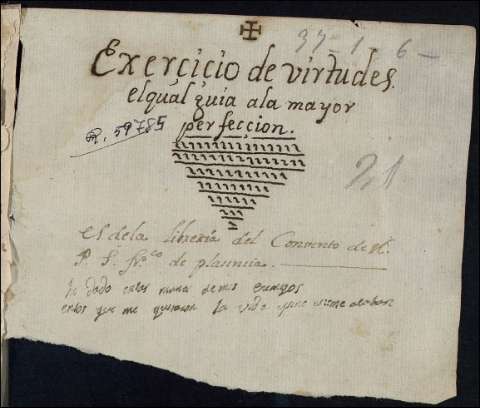 37-1-6-
Exerçicio de virtudes.
el qual guia ala mayor
perfeçcion.
R. 59785
21
es dela libreria del Convento de N.
P. S. Fr.co de plasencia.
he dado enlas manos demis enemigos
enlos que me quitaran la vida